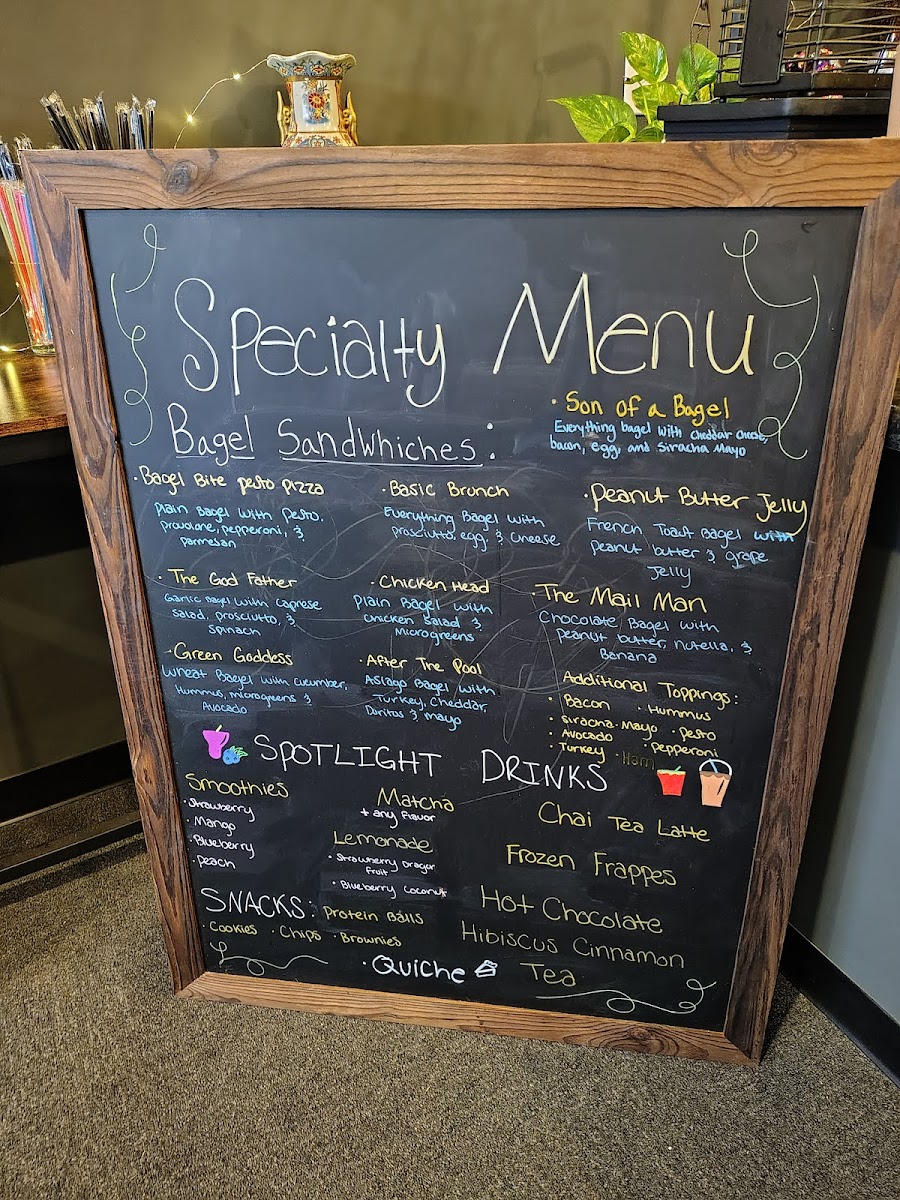 Specialty Menu
• Son of a Bagel
Everything bagel with cheddar cheese,
bacon, egg, and Siracha Mayo
Bagel Sandwhiches:
• Bagel Bite pesto pizza
Plain Bagel with pesto,
provolone, pepperoni, &
parmesan
• Basic Brunch
Everything Bagel with
prosciutto, egg, & cheese
• Peanut Butter Jelly
French Toast Bagel with
peanut butter & grape
Jelly
• The God Father
Garlic Bagel with caprese
salad, prosciutto, &
spinach
• Chicken Head
Plain Bagel with
chicken salad &
Microgreens
• The Mail Man
Chocolate Bagel with
peanut butter, nutella, &
Banana
• Green Goddess
Wheat Bagel with cucumber,
Hummus, microgreens &
Avocado
• After The Pool
Asiago Bagel with
Turkey, Cheddar,
Doritos & mayo
Additional Toppings:
• Bacon • Hummus
• Siracha Mayo • Pesto
• Avocado • Pepperoni
• Turkey • Ham
SPOTLIGHT DRINKS
Smoothies
• Strawberry
• Mango
• Blueberry
• Peach
Matcha
+ any flavor
Lemonade
• Strawberry Dragon
Fruit
• Blueberry Coconut
Chai Tea Latte
Frozen Frappes
Hot Chocolate
Hibiscus Cinnamon
Tea
SNACKS: Protein Balls
• Cookies • Chips • Brownies
• Quiche